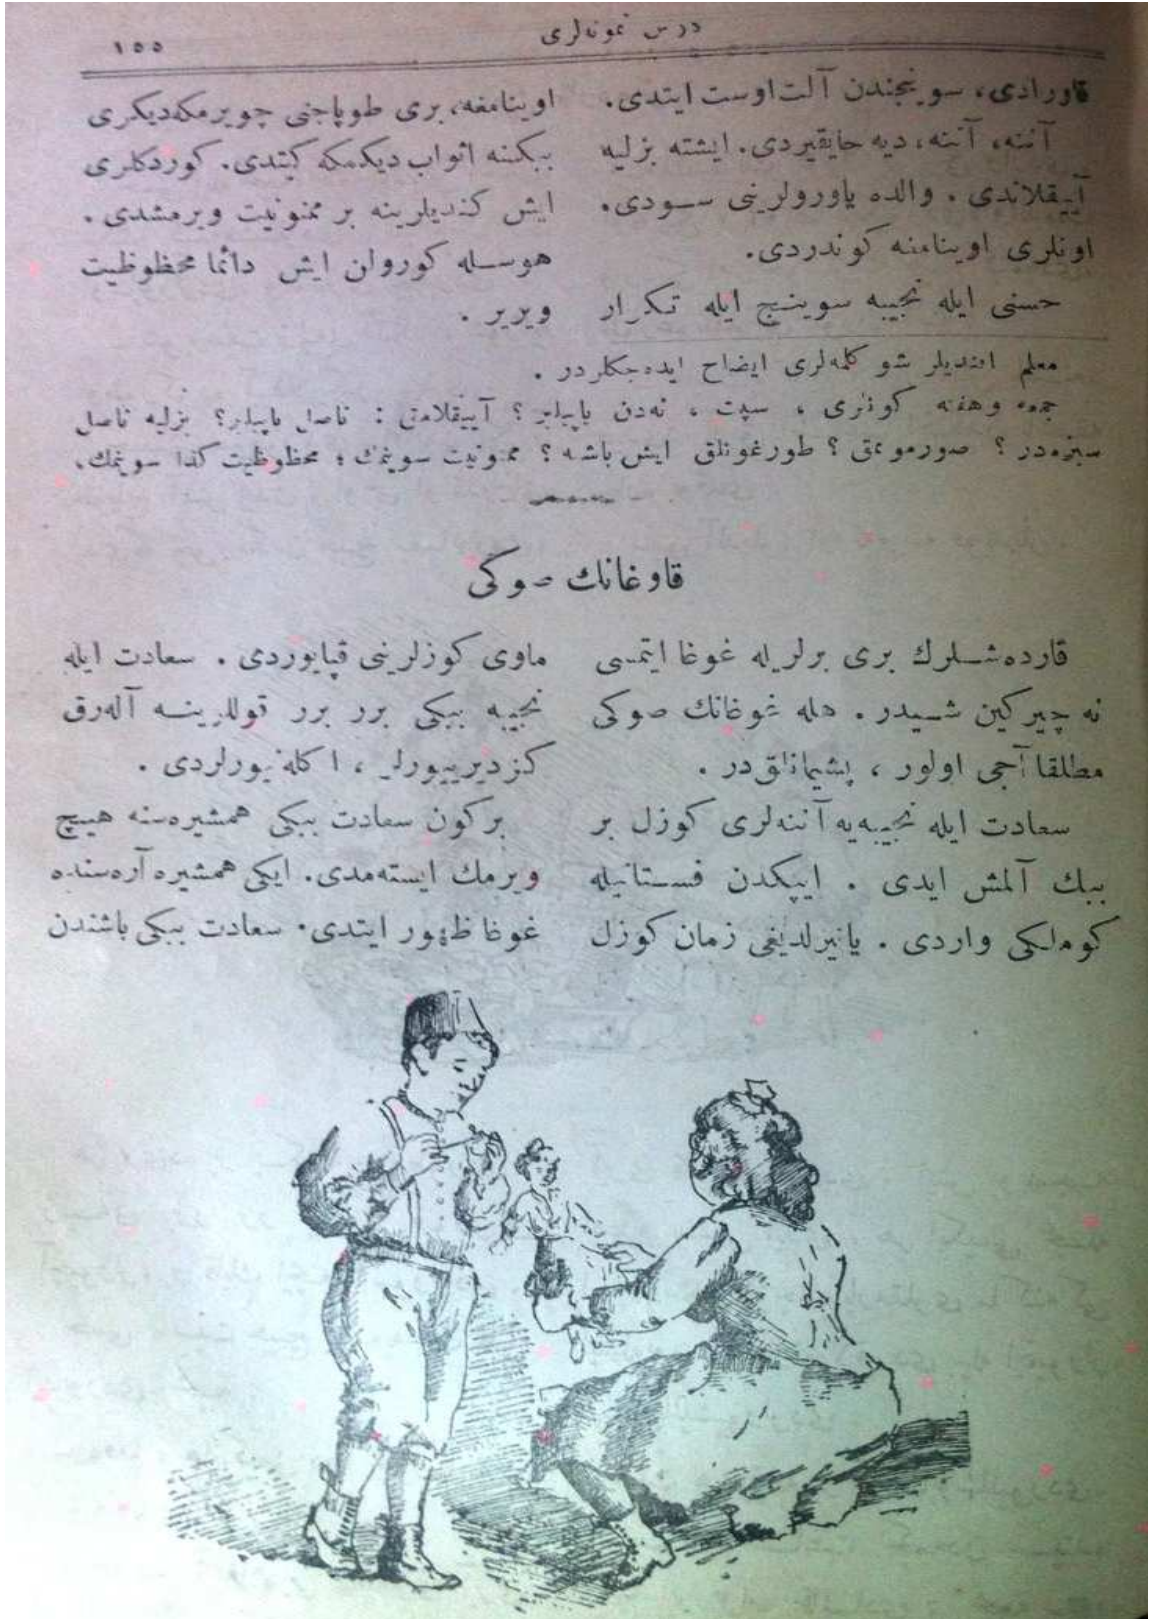 درس نمونه‌لری
١٥٥
قاورادی، سوینجندن آلت اوست ایتدی.
آننه، آننه، دیه حایقیردی. ایشته بزلیه
آییقلاندی. والده یاورولرینی سودی.
اونلری اوینامنه کوندردی.
حسنی ایله نجیبه سوینج ایله تکرار
اوینامغه، بری طوپاجنی چویرمکه دیکری
ببکنه اثواب دیکمکه کیتدی. کوردکلری
ایش کندیلرینه بر ممنونیت ویرمشدی.
هوسله کورولن ایش دائما محظوظیت
ویریر.
معلم افندیلر شو کلمه‌لری ایضاح ایده‌جکلردر.
جمعه وهفته کونلری، سپت، نه‌دن یاپیلیر؟ آییقلامق: ناصل یاپیلیر؟ بزلیه ناصل
سبزه‌در؟ صورمو‌مق؟ طورغونلق ایش باشه؟ ممنونیت سوینمك؛ محظوظیت کذا سوینمك،
قاوغانك صوکی
قارده‌شلرك بری برلریله غوغا ایتمسی
نه چیرکین شیدر. هله غوغانك صوکی
مطلقا آجی اولور، پشیمانلق‌در.
سعادت ایله نجیبه‌یه آننه‌لری کوزل بر
ببك آلمش ایدی. ایپکدن فستانیله
کوملکی واردی. یاتیرلدیغی زمان کوزل
ماوی کوزلرینی قپایوردی. سعادت ایله
نجیبه ببکی برر برر قوللرینه آله‌رق
کزدیرییورلر، اکله‌نیورلردی.
برکون سعادت ببکی همشیره‌سنه هیچ
ویرمك ایسته‌مدی. ایکی همشیره آره‌سنده
غوغا ظهور ایتدی. سعادت ببکی باشندن